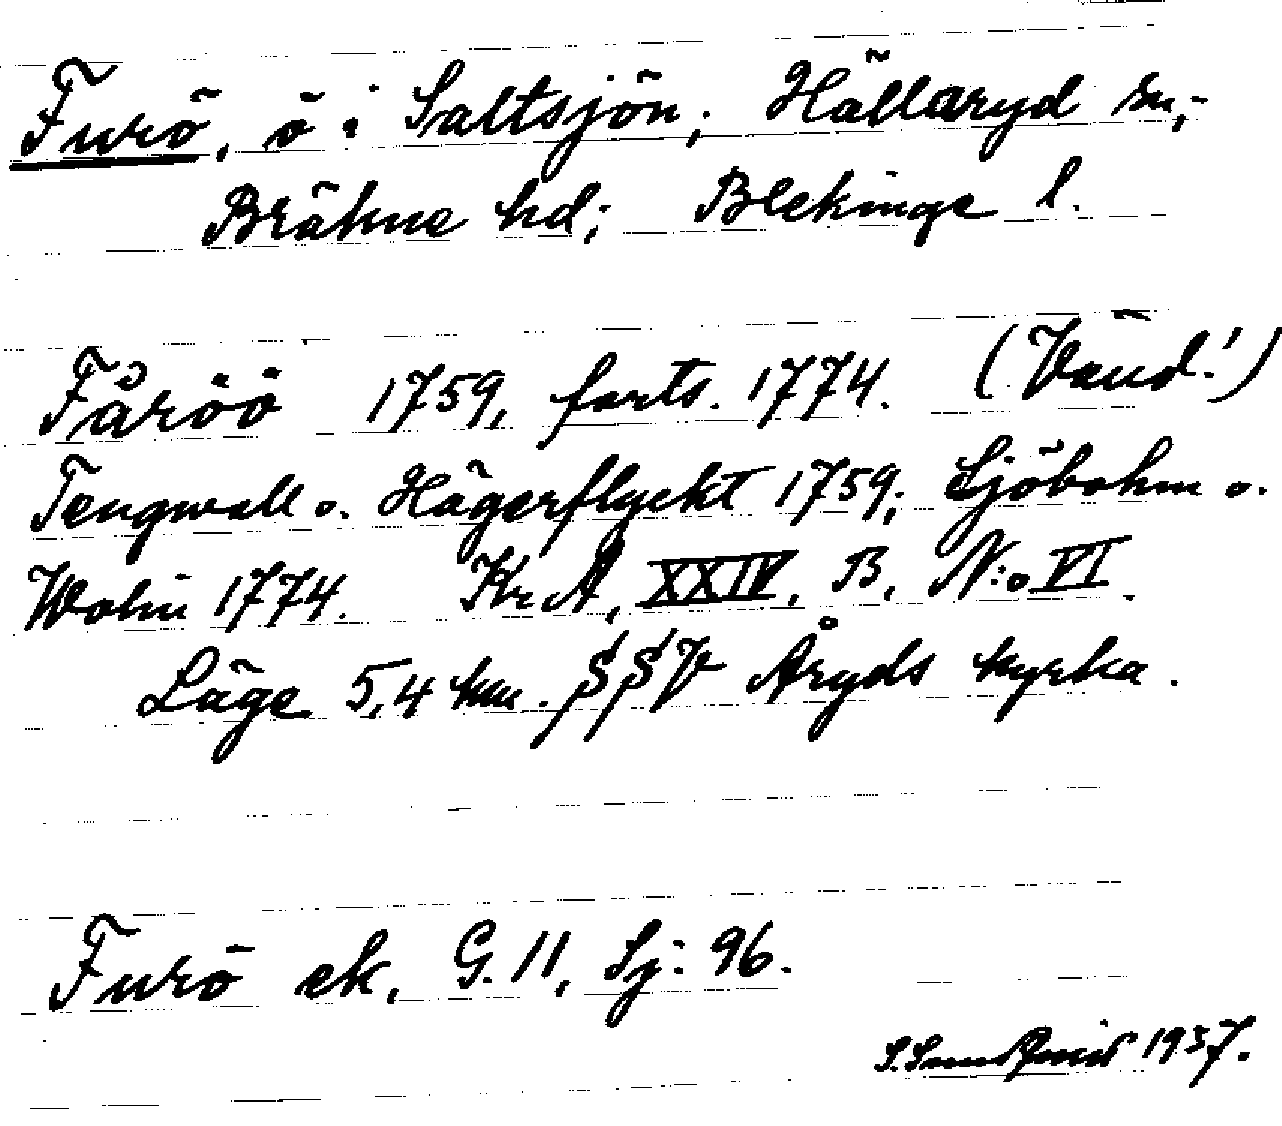 Furö, ö i Saltsjön; Hällaryd sn,
Bräkne hd; Blekinge l.
Fåröö 1759, forts. 1774. (Vänd!)
Tengwall o. Hägerflyckt 1759; Sjöbohm o.
Wolin 1774. KrA, XXIV, B, N:o VI.
Läge 5,4 km. SSV Åryds kyrka.
Furö ek, G. 11, Sj: 96.
1937.